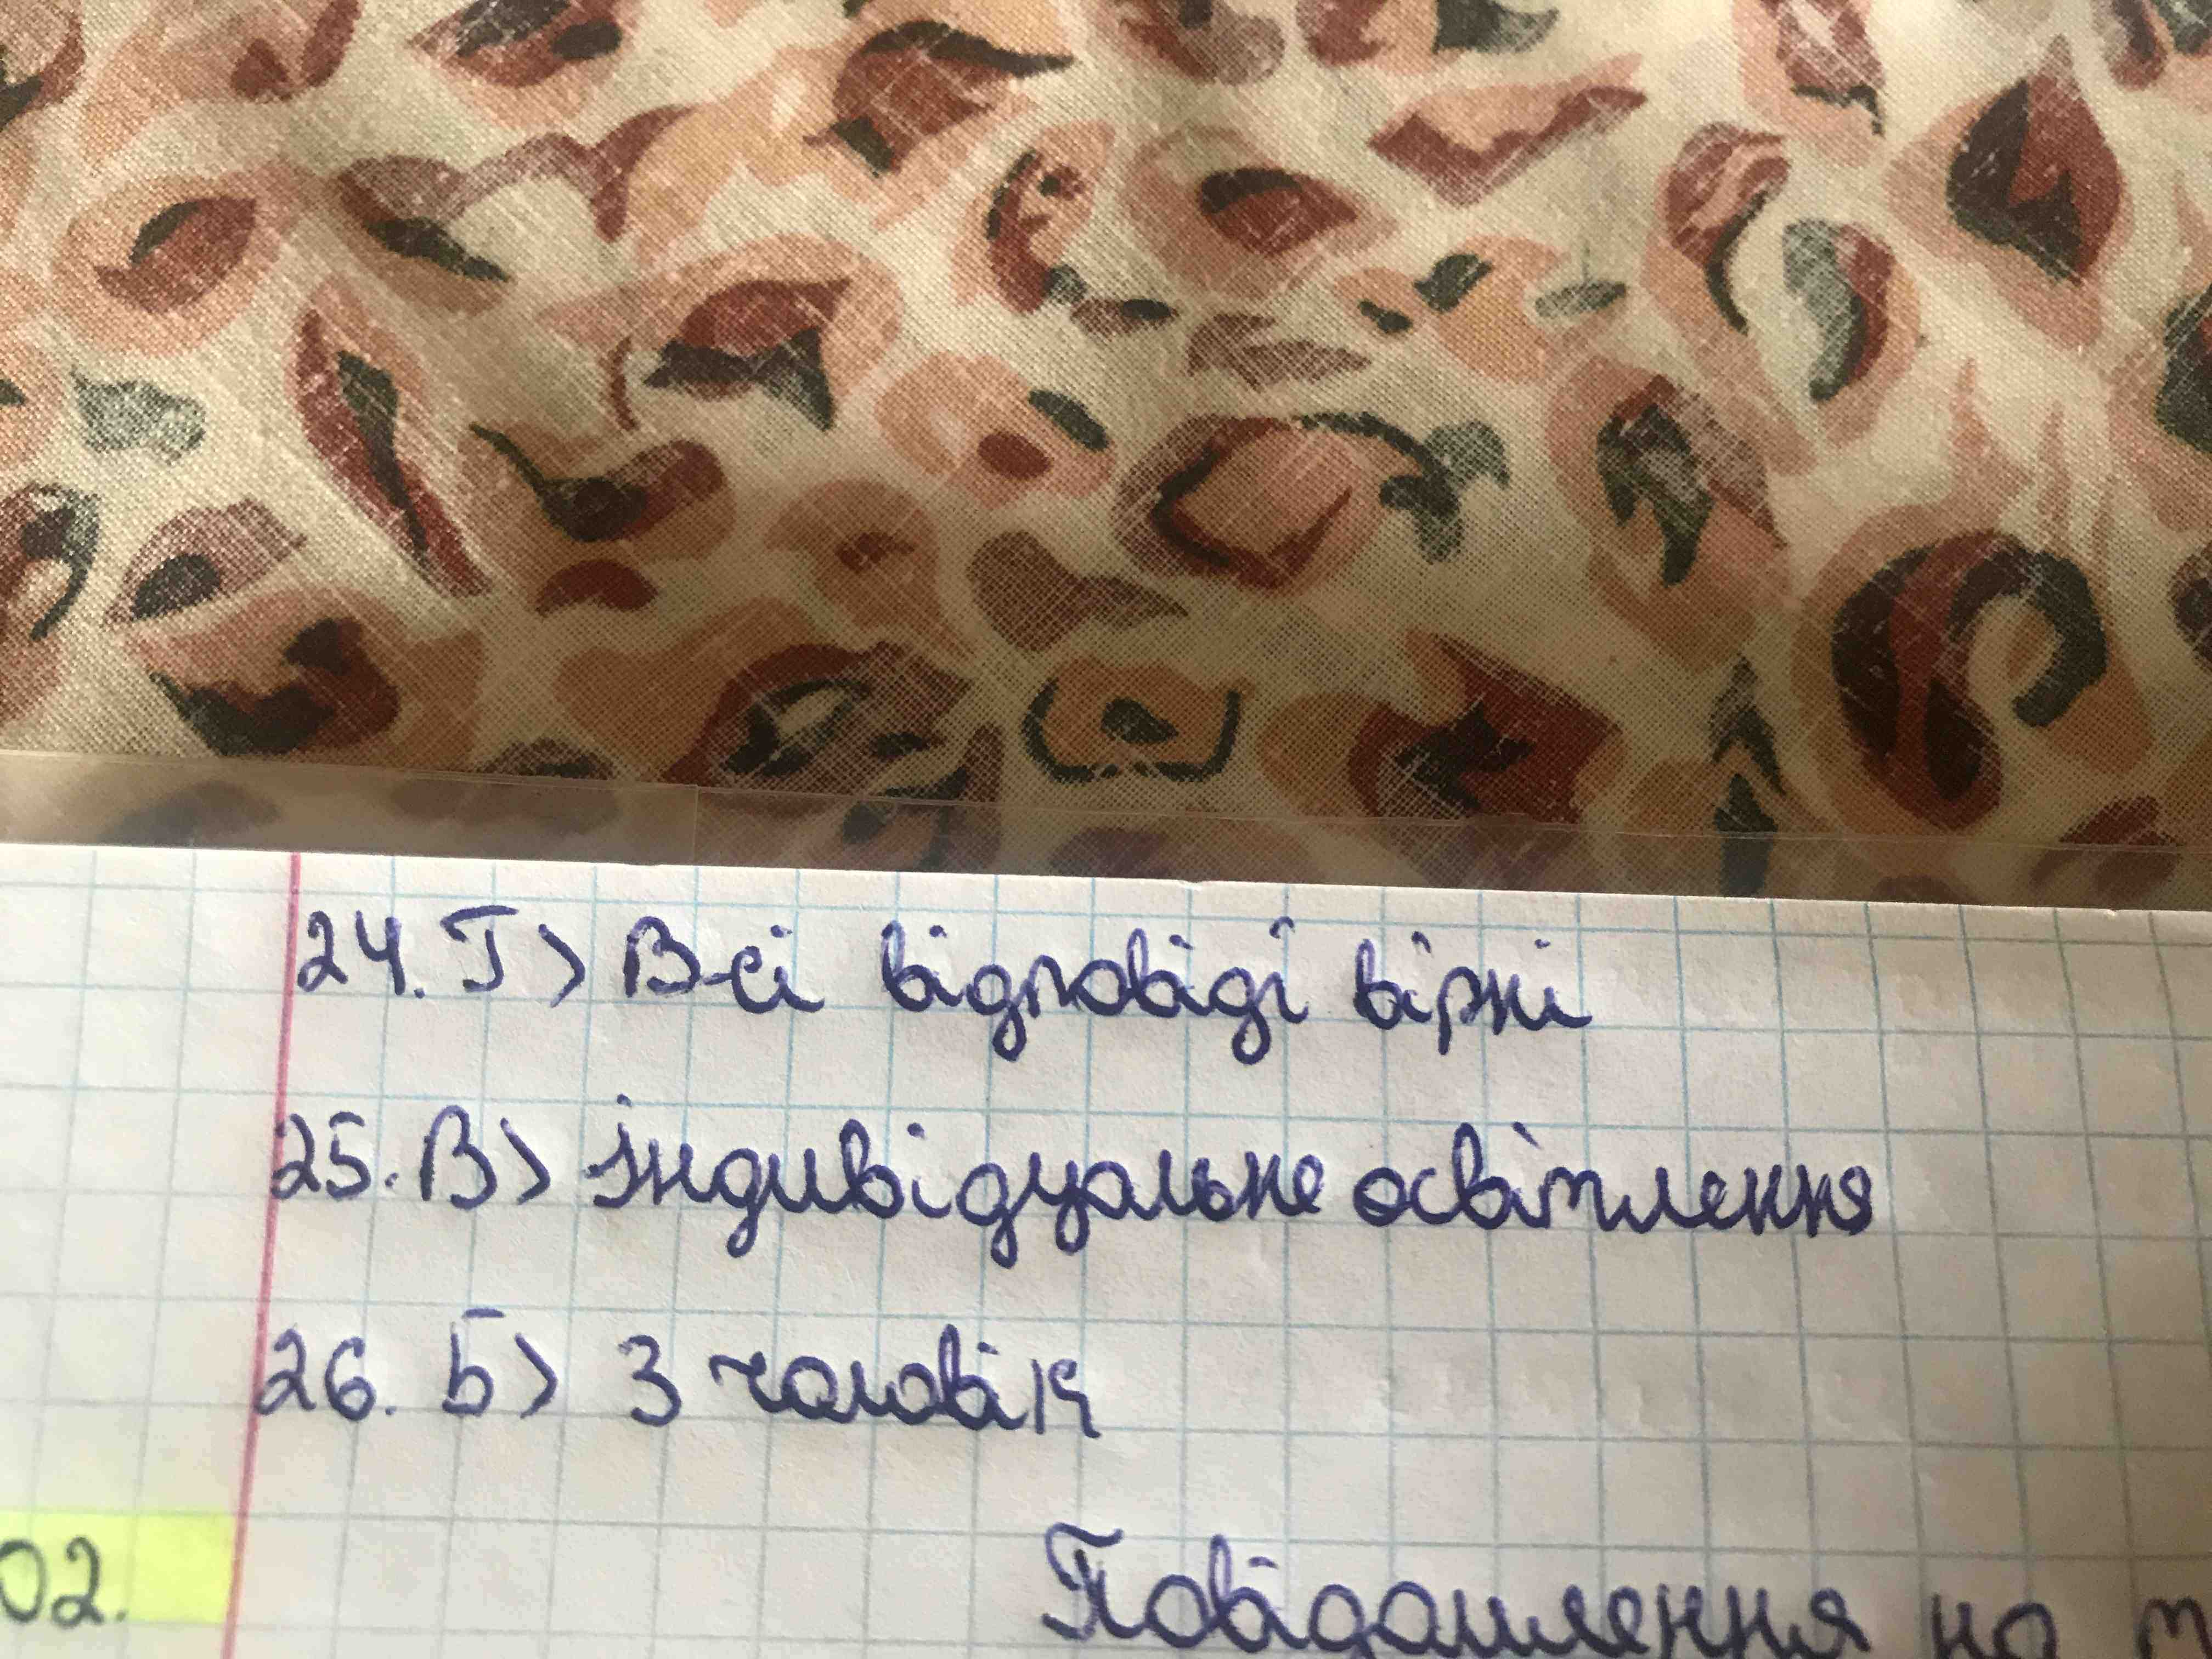 24. Г> Всі відповіді вірні
25. В> індивідуальне освітлення
26. Б> 3 чоловік
02.
Повідомлення на